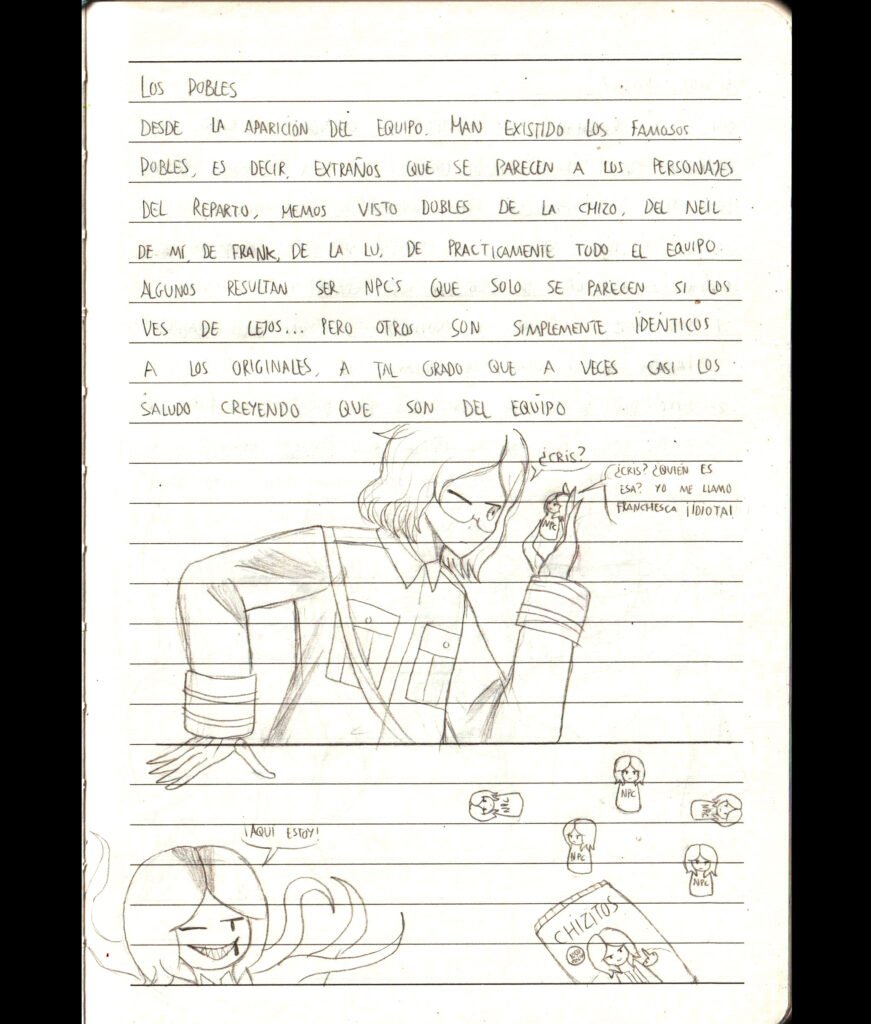 LOS DOBLES
DESDE LA APARICIÓN DEL EQUIPO. HAN EXISTIDO LOS FAMOSOS
DOBLES, ES DECIR, EXTRAÑOS QUE SE PARECEN A LOS PERSONAJES
DEL REPARTO, HEMOS VISTO DOBLES DE LA CHIZO, DEL NEIL
DE MÍ, DE FRANK, DE LA LU, DE PRACTICAMENTE TODO EL EQUIPO.
ALGUNOS RESULTAN SER NPC'S QUE SOLO SE PARECEN SI LOS
VES DE LEJOS... PERO OTROS SON SIMPLEMENTE IDÉNTICOS
A LOS ORIGINALES, A TAL GRADO QUE A VECES CASI LOS
SALUDO CREYENDO QUE SON DEL EQUIPO
¿CRIS?
¿CRIS? ¿QUIÉN ES
ESA? YO ME LLAMO
FRANCHESCA ¡IDIOTA!
NPC
NPC
NPC
NPC
NPC
NPC
¡AQUÍ ESTOY!
CHIZITOS